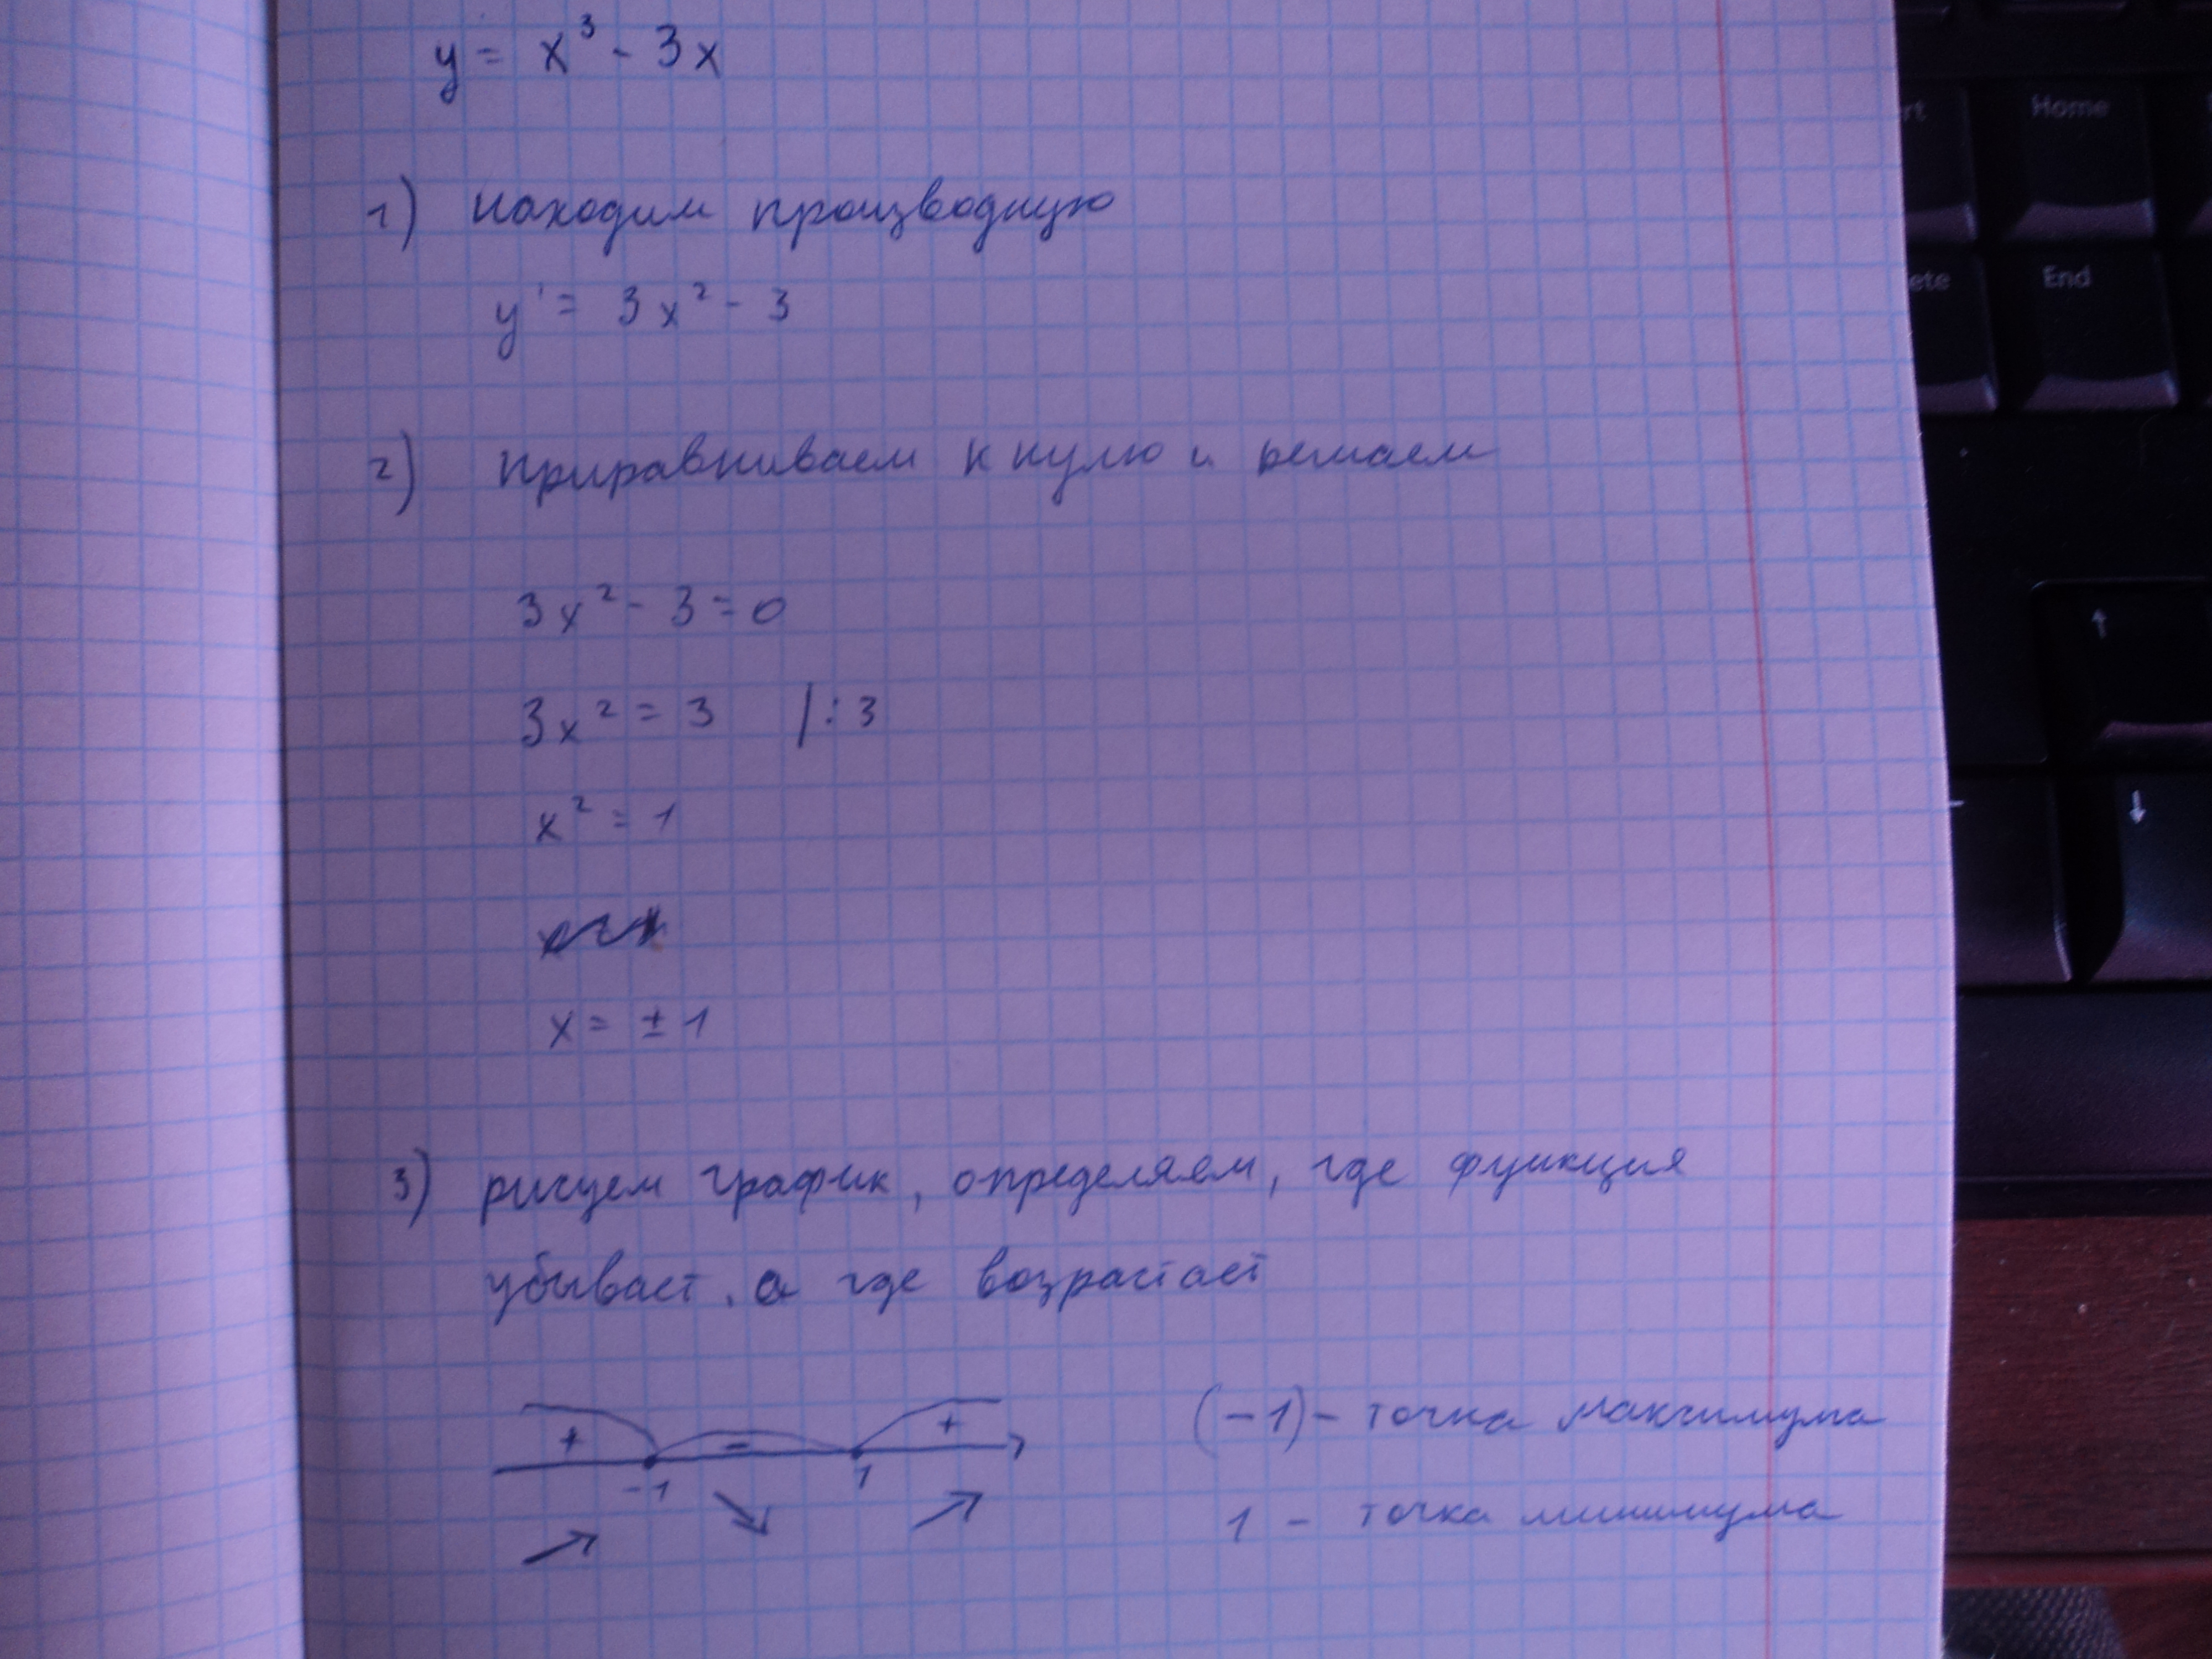 y = x³ - 3x
1) находим производную
y' = 3x² - 3
2) приравниваем к нулю и решаем
3x² - 3 = 0
3x² = 3 | : 3
x² = 1
x = ± 1
3) рисуем график, определяем, где функция
убывает, а где возрастает
+ - +
-1 1
(-1) - точка максимума
1 - точка минимума
Home
End
ete
rt
↑
↓